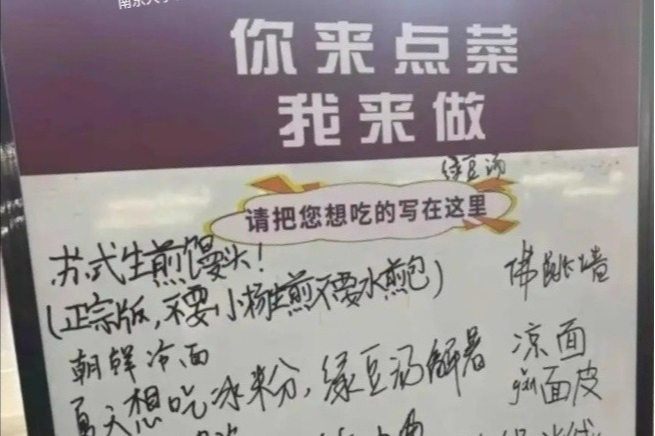 南京大学
你来点菜
我来做
绿豆汤
请把您想吃的写在这里
苏式生煎馒头！
(正宗版，不要小杨生煎不要水煎包)
佛跳墙
朝鲜冷面
凉面
夏天想吃冰粉，绿豆汤解暑
gǎn面皮